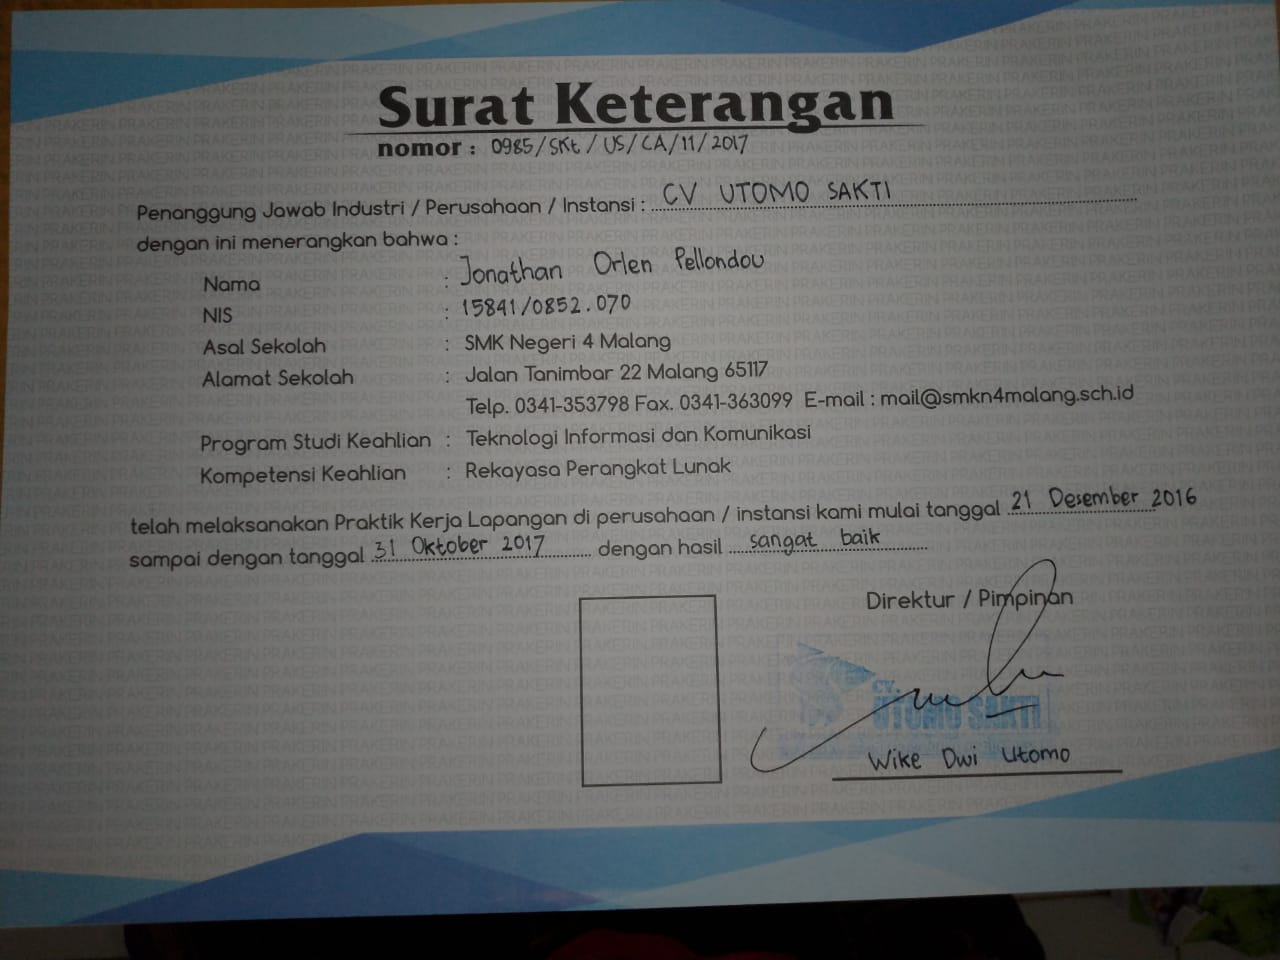 Surat Keterangan
nomor : 0985/SKt/US/CA/11/2017
Penanggung Jawab Industri / Perusahaan / Instansi : CV UTOMO SAKTI
dengan ini menerangkan bahwa :
Nama : Jonathan Orlen Pellondou
NIS : 15841/0852.070
Asal Sekolah : SMK Negeri 4 Malang
Alamat Sekolah : Jalan Tanimbar 22 Malang 65117
Telp. 0341-353798 Fax. 0341-363099 E-mail : mail@smkn4malang.sch.id
Program Studi Keahlian : Teknologi Informasi dan Komunikasi
Kompetensi Keahlian : Rekayasa Perangkat Lunak
telah melaksanakan Praktik Kerja Lapangan di perusahaan / instansi kami mulai tanggal 21 Desember 2016
sampai dengan tanggal 31 Oktober 2017 dengan hasil sangat baik
Direktur / Pimpinan
CV.
UTOMO SAKTI
Wike Dwi Utomo